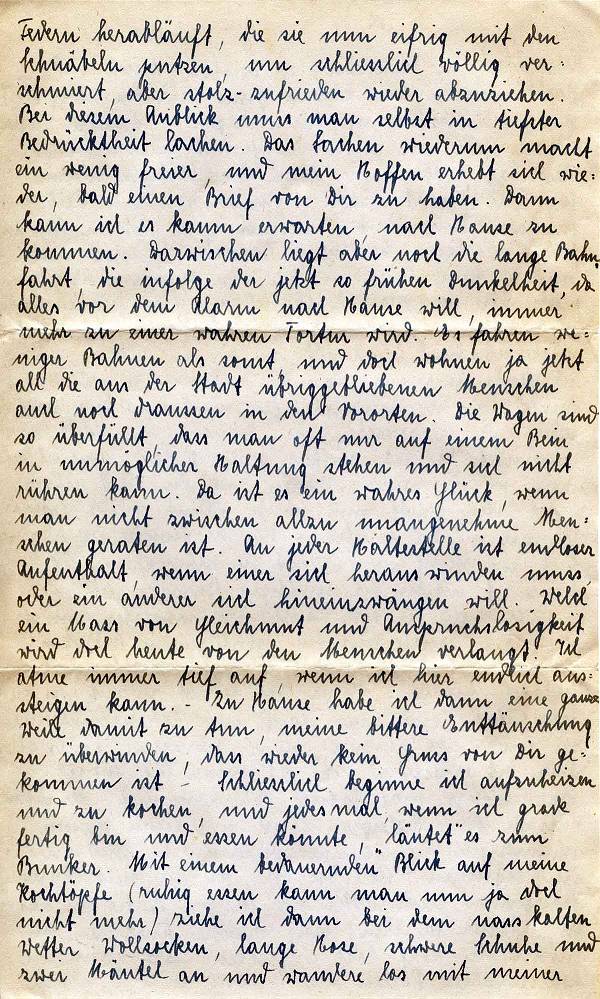 Federn herabläuft, die sie nun eifrig mit den
Schnäbeln putzen, um schliesslich völlig ver-
schmiert, aber stolz-zufrieden wieder abzuziehen.
Bei diesem Anblick muss man selbst in tiefster
Bedrücktheit lachen. Das Lachen wiederum macht
ein wenig freier, und mein Hoffen erhebt sich wie=
der, bald einen Brief von Dir zu haben. Dann
kann ich es kaum erwarten, nach Hause zu
kommen. Dazwischen liegt aber noch die lange Bahn=
fahrt, die infolge der jetzt so frühen Dunkelheit, da
alles vor dem Alarm nach Hause will, immer
mehr zu einer wahren Tortur wird. Es fahren we=
niger Bahnen als sonst, und doch wohnen ja jetzt
all die aus der Stadt übriggebliebenen Menschen
auch noch draussen in den Vororten. Die Wagen sind
so überfüllt, dass man oft nur auf einem Bein
in unmöglicher Haltung stehen und sich nicht
rühren kann. Da ist es ein wahres Glück, wenn
man nicht zwischen allzu unangenehme Men=
schen geraten ist. An jeder Haltestelle ist endloser
Aufenthalt, wenn einer sich heraus winden muss,
oder ein anderer sich hineinzwängen will. Welch
ein Mass von Gleichmut und Anspruchslosigkeit
wird doch heute von den Menschen verlangt. Ich
atme immer tief auf, wenn ich hier endlich aus=
steigen kann. - Zu Hause habe ich dann eine ganze
Weile damit zu tun, meine bittere Enttäuschung
zu überwinden, dass wieder kein Gruss von Dir ge=
kommen ist - Schliesslich beginne ich aufzuheizen
und zu kochen, und jedesmal, wenn ich grade
fertig bin und essen könnte, „läutet" es zum
Bunker. Mit einem bedauernden Blick auf meine
Kochtöpfe (ruhig essen kann man nun ja doch
nicht mehr) ziehe ich dann bei dem nass kalten
Wetter Wollsocken, lange Hose, schwere Schuhe und
zwei Mäntel an und wandere los mit meiner